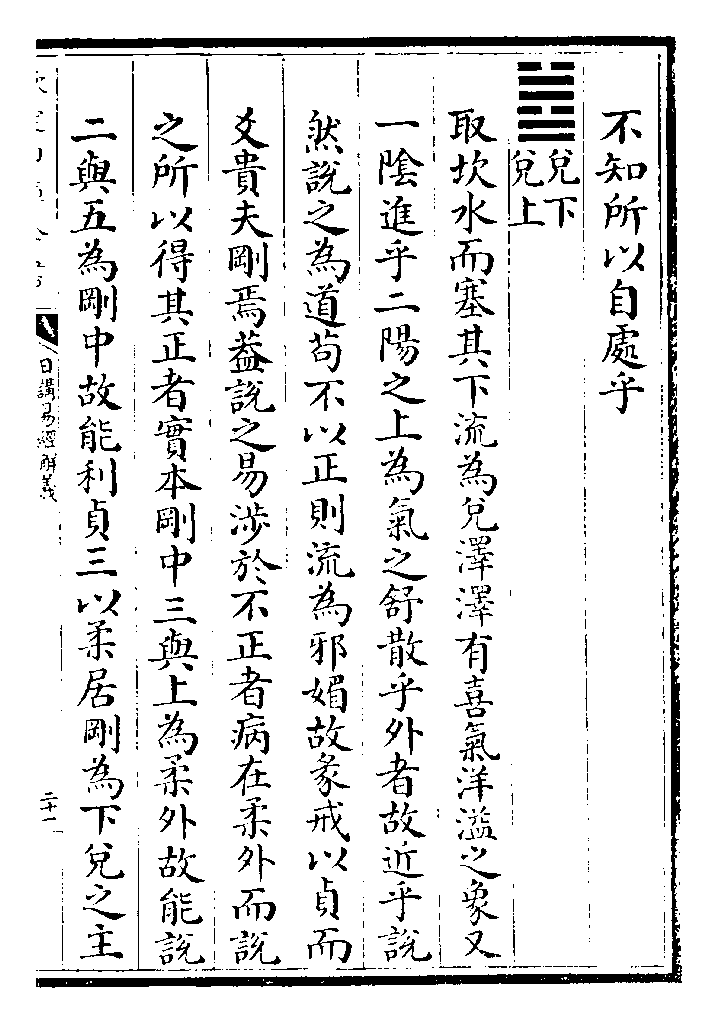 不知所以自處乎
兌下
兌上
取坎水而塞其下流為兌澤澤有喜氣洋溢之象又
一陰進乎二陽之上為氣之舒散乎外者故近乎說
然說之為道苟不以正則流為邪媚故彖戒以貞而
爻貴夫剛焉葢說之易涉於不正者病在柔外而說
之所以得其正者實本剛中三與上為柔外故能說
二與五為剛中故能利貞三以柔居剛為下兌之主
日講易經解義
二十一